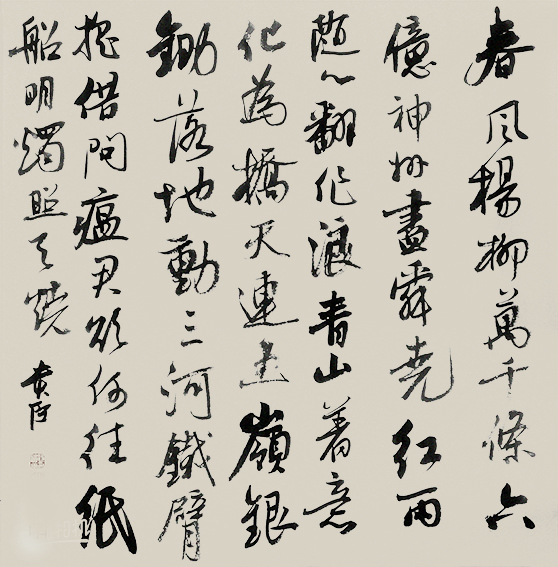 春風楊柳萬千條六
億神州盡舜堯紅雨
隨心翻作浪青山着意
化為橋天連五嶺銀
鋤落地動三河鐵臂
搖借問瘟君欲何往紙
船明燭照天燒